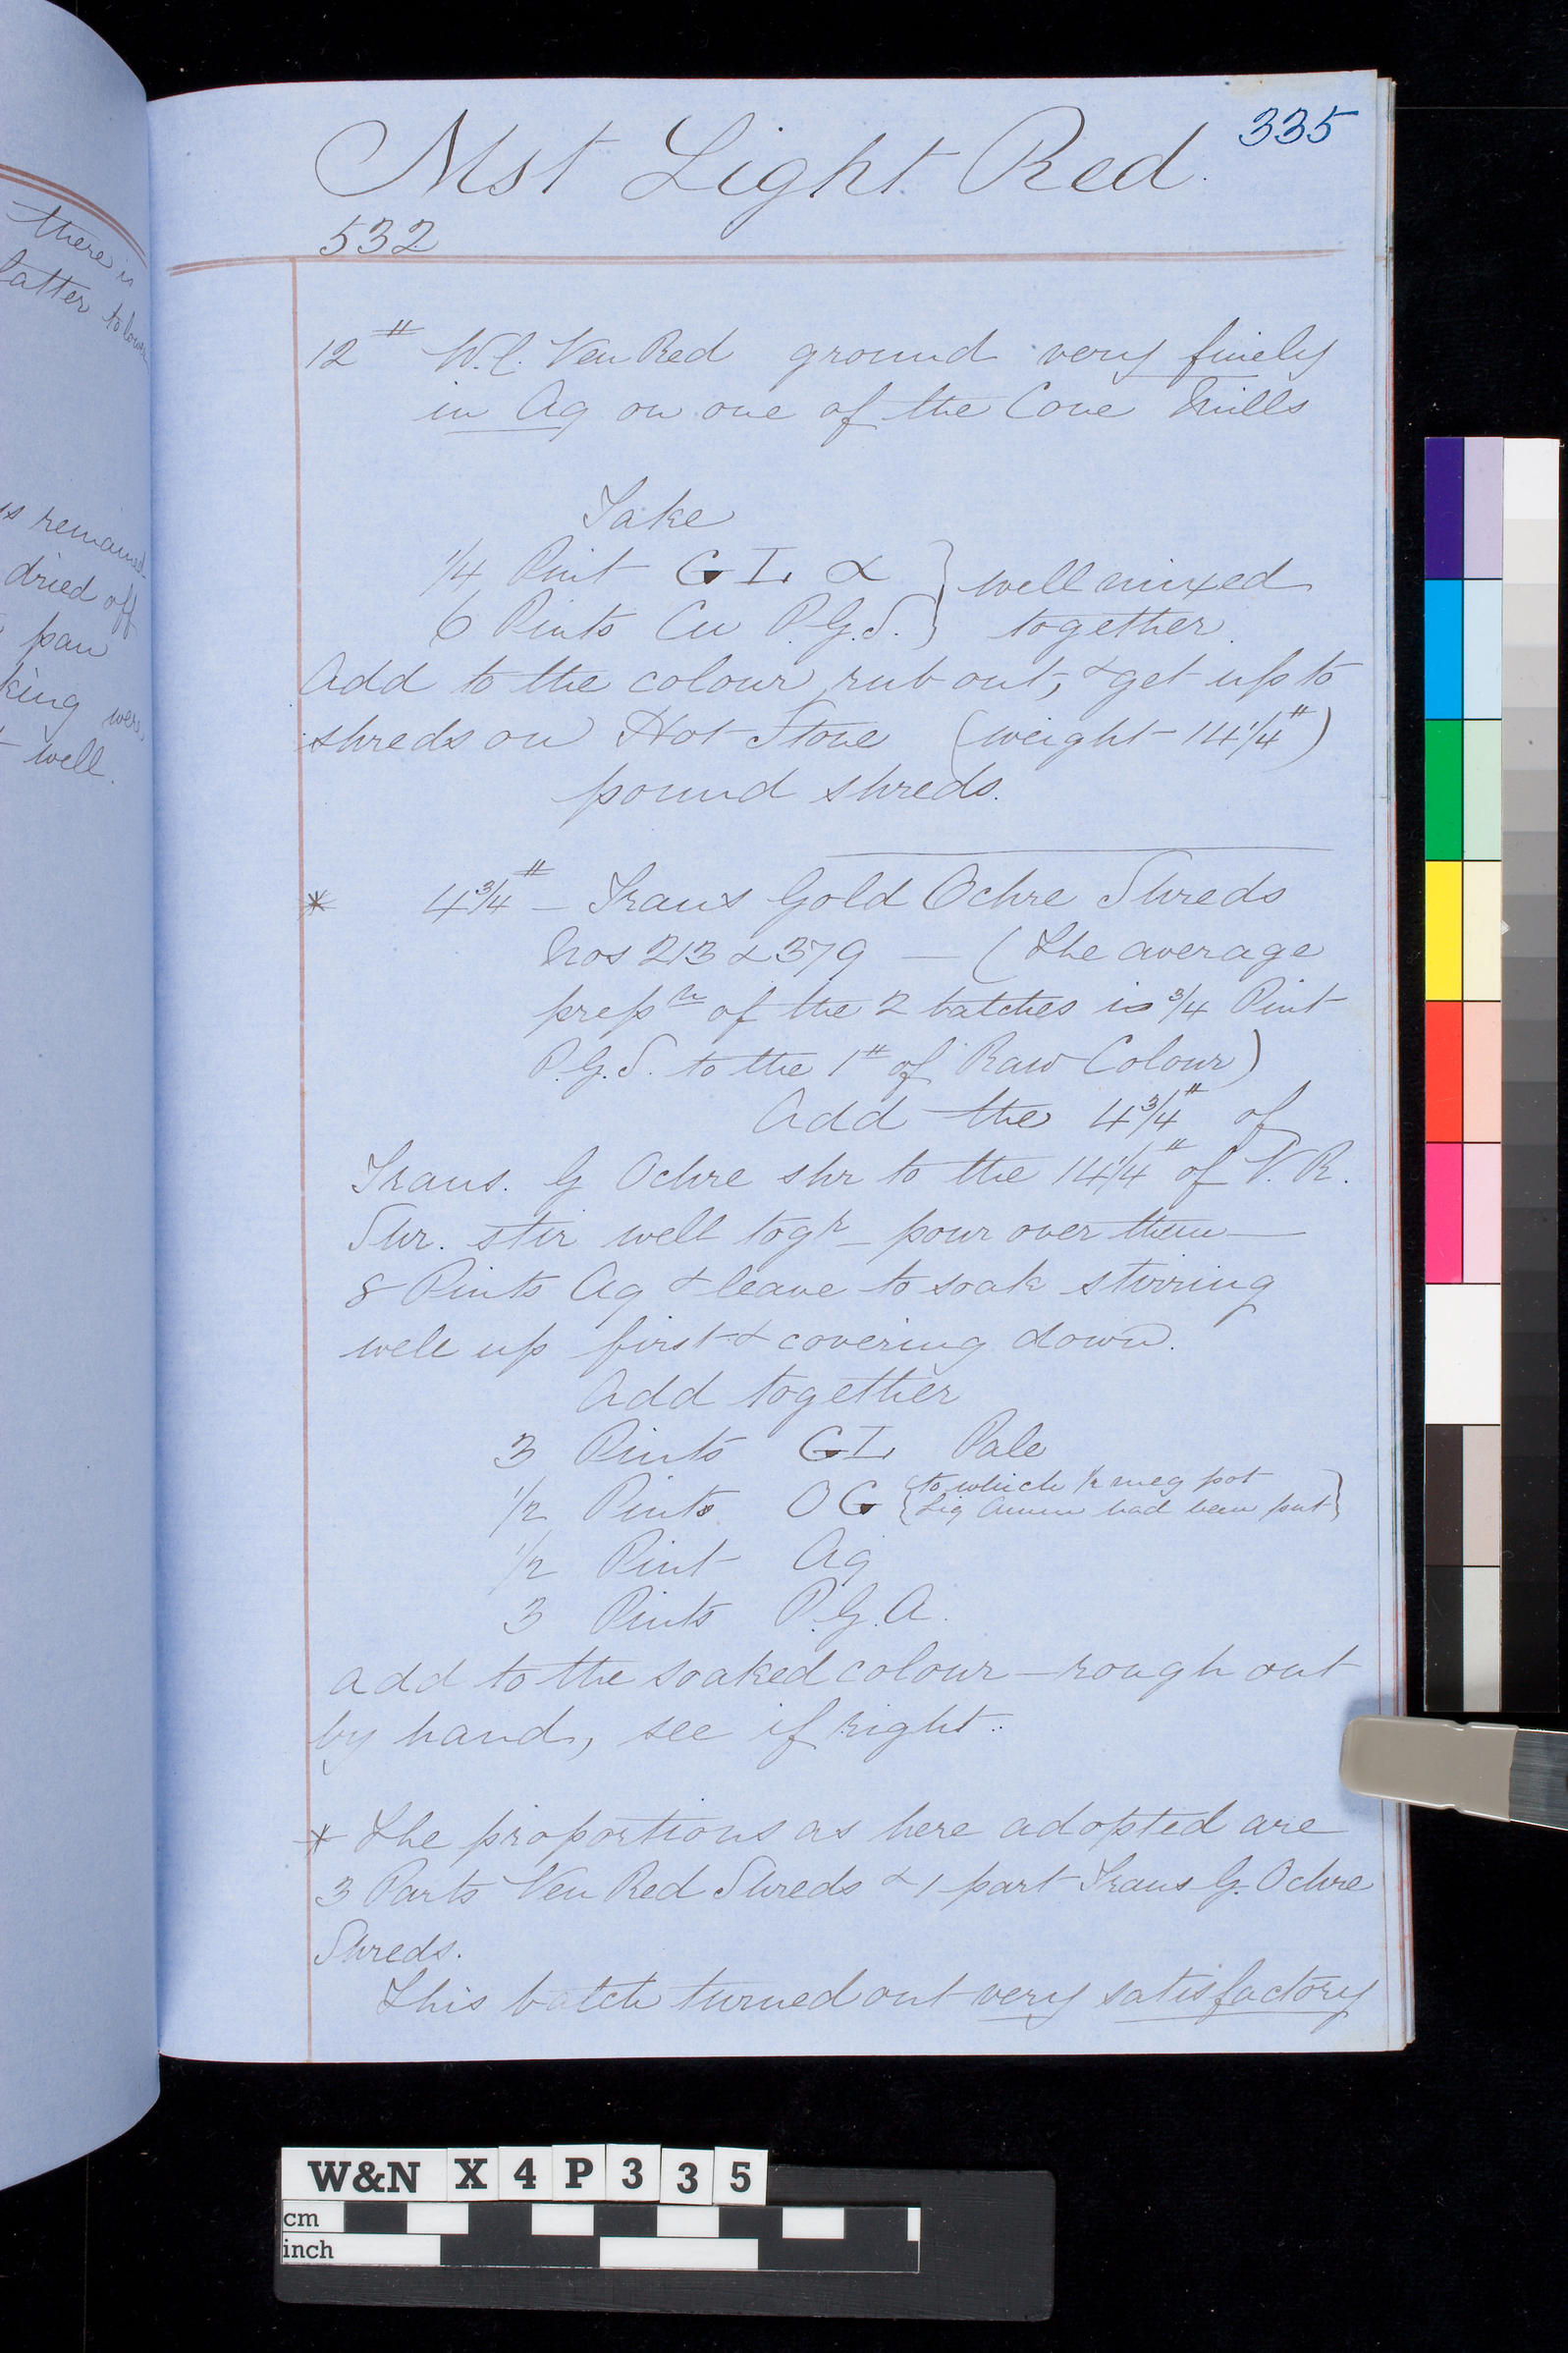 335
Mst Light Red.
532
12 # W.C. Ven Red ground very finely
in Aq on one of the Cone Mills
Take
1/4 Pint GL α } well mixed
6 Pints Cu P.G.S. } together.
Add to the colour, rub out, & get up to
shreds on Hot Stone (weight 14 1/4 #)
pound shreds.
* 4 3/4 # – Trans Gold Ochre Shreds
Nos 213 & 379 — (The average
prepn of the 2 batches is 3/4 Pint
P.G.S. to the 1 # of Raw Colour)
Add the 4 3/4 # of
Trans. G Ochre shr to the 14 1/4 # of V. R.
Shr. stir well togr – pour over them —
8 Pints Aq & leave to soak stirring
well up first & covering down.
Add together
3 Pints GL Pale
1/2 Pints OG {to which 1/2 meg pot
Liq Amm had been put}
1/2 Pint Aq
3 Pints P.G.A.
add to the soaked colour – rough out
by hand, see if right.
* The proportions as here adopted are
3 Parts Ven Red Shreds & 1 part Trans G. Ochre
Shreds.
This batch turned out very satisfactory
there is
latter to lower
remained
dried off
pan
king were
well.
W&N X4P335
cm
inch